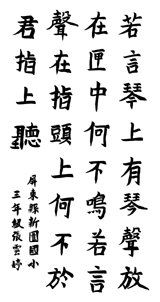 若言琴上有琴聲放
在匣中何不鳴若言
聲在指頭上何不於
君指上聽
屏東縣新園國小
三年級張雲婷